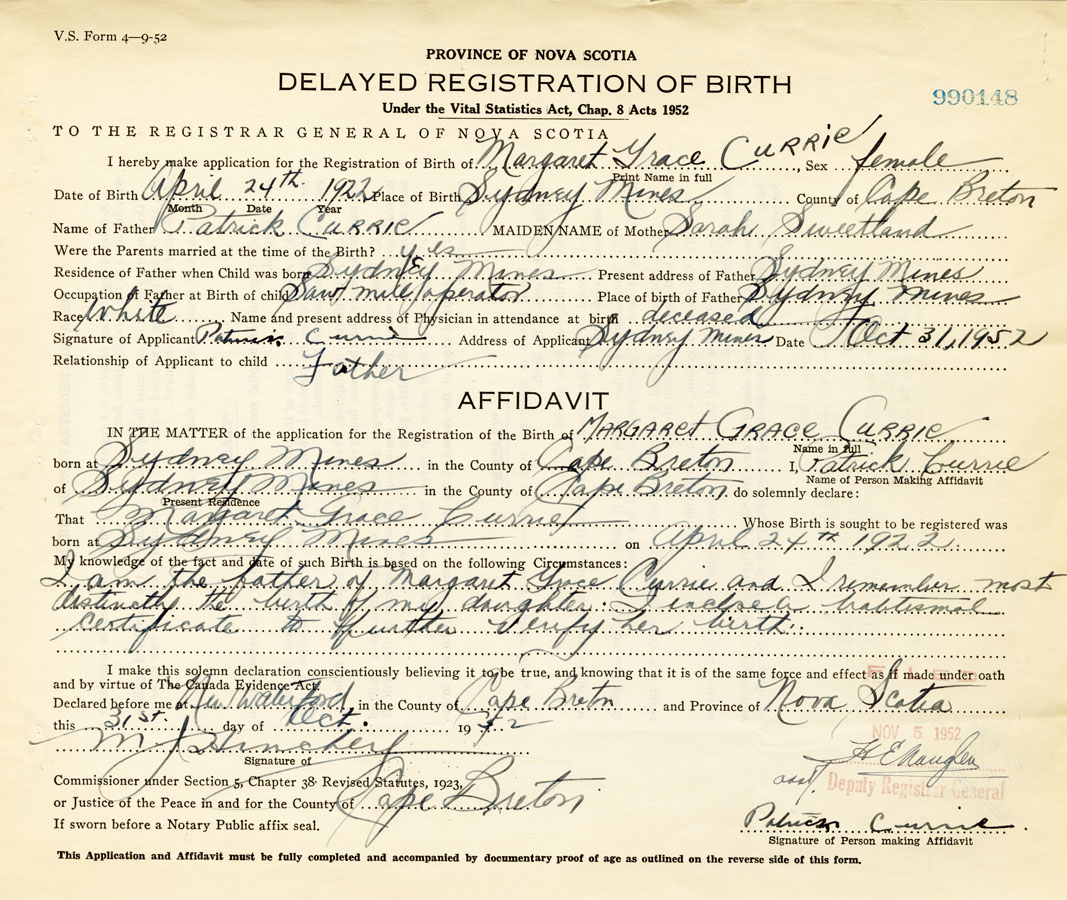 V.S. Form 4—9-52
PROVINCE OF NOVA SCOTIA
DELAYED REGISTRATION OF BIRTH
990148
Under the Vital Statistics Act, Chap. 8 Acts 1952
TO THE REGISTRAR GENERAL OF NOVA SCOTIA
I hereby make application for the Registration of Birth of Margaret Grace CURRIE, Sex female
Print Name in full
Date of Birth April 24th 1922 Place of Birth Sydney Mines County of Cape Breton
Month Date Year
Name of Father Patrick Currie MAIDEN NAME of Mother Sarah Sweetland
Were the Parents married at the time of the Birth? yes
Residence of Father when Child was born Sydney Mines Present address of Father Sydney Mines
Occupation of Father at Birth of child Saw mill operator Place of birth of Father Sydney Mines
Race White Name and present address of Physician in attendance at birth deceased
Signature of Applicant Patrick Currie Address of Applicant Sydney Mines Date Oct 31, 1952
Relationship of Applicant to child Father
AFFIDAVIT
IN THE MATTER of the application for the Registration of the Birth of MARGARET GRACE CURRIE
Name in full
born at Sydney Mines in the County of Cape Breton I, Patrick Currie
Name of Person Making Affidavit
of Sydney Mines in the County of Cape Breton do solemnly declare:
Present Residence
That Margaret Grace Currie Whose Birth is sought to be registered was
born at Sydney Mines on April 24th 1922
My knowledge of the fact and date of such Birth is based on the following Circumstances:
I am the father of Margaret Grace Currie and I remember most
distinctly the birth of my daughter. I inclose a babtismal
certificate to further verify her birth.
I make this solemn declaration conscientiously believing it to be true, and knowing that it is of the same force and effect as if made under oath
and by virtue of The Canada Evidence Act.
Declared before me at New Waterford, in the County of Cape Breton and Province of Nova Scotia
this 31st. day of Oct. 1952
NOV 5 1952
M J Hinchey
Signature of
Commissioner under Section 5, Chapter 38 Revised Statutes, 1923,
asst. Deputy Registrar General
or Justice of the Peace in and for the County of Cape Breton
If sworn before a Notary Public affix seal.
Patrick Currie
Signature of Person making Affidavit
This Application and Affidavit must be fully completed and accompanied by documentary proof of age as outlined on the reverse side of this form.